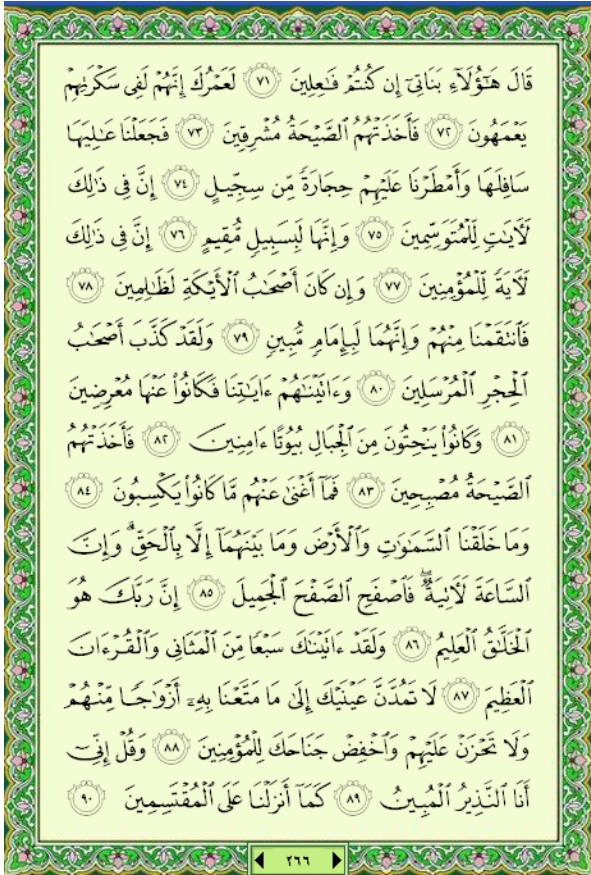 قَالَ هَٰٓؤُلَآءِ بَنَاتِىٓ إِن كُنتُمْ فَٰعِلِينَ ٧١ لَعَمْرُكَ إِنَّهُمْ لَفِى سَكْرَتِهِمْ
يَعْمَهُونَ ٧٢ فَأَخَذَتْهُمُ ٱلصَّيْحَةُ مُشْرِقِينَ ٧٣ فَجَعَلْنَا عَٰلِيَهَا
سَافِلَهَا وَأَمْطَرْنَا عَلَيْهِمْ حِجَارَةً مِّن سِجِّيلٍ ٧٤ إِنَّ فِى ذَٰلِكَ
لَءَايَٰتٍ لِّلْمُتَوَسِّمِينَ ٧٥ وَإِنَّهَا لَبِسَبِيلٍ مُّقِيمٍ ٧٦ إِنَّ فِى ذَٰلِكَ
لَءَايَةً لِّلْمُؤْمِنِينَ ٧٧ وَإِن كَانَ أَصْحَٰبُ ٱلْأَيْكَةِ لَظَٰلِمِينَ ٧٨
فَٱنتَقَمْنَا مِنْهُمْ وَإِنَّهُمَا لَبِإِمَامٍ مُّبِينٍ ٧٩ وَلَقَدْ كَذَّبَ أَصْحَٰبُ
ٱلْحِجْرِ ٱلْمُرْسَلِينَ ٨٠ وَءَاتَيْنَٰهُمْ ءَايَٰتِنَا فَكَانُوا۟ عَنْهَا مُعْرِضِينَ
٨١ وَكَانُوا۟ يَنْحِتُونَ مِنَ ٱلْجِبَالِ بُيُوتًا ءَامِنِينَ ٨٢ فَأَخَذَتْهُمُ
ٱلصَّيْحَةُ مُصْبِحِينَ ٨٣ فَمَآ أَغْنَىٰ عَنْهُم مَّا كَانُوا۟ يَكْسِبُونَ ٨٤
وَمَا خَلَقْنَا ٱلسَّمَٰوَٰتِ وَٱلْأَرْضَ وَمَا بَيْنَهُمَآ إِلَّا بِٱلْحَقِّ ۗ وَإِنَّ
ٱلسَّاعَةَ لَءَاتِيَةٌ ۖ فَٱصْفَحِ ٱلصَّفْحَ ٱلْجَمِيلَ ٨٥ إِنَّ رَبَّكَ هُوَ
ٱلْخَلَّٰقُ ٱلْعَلِيمُ ٨٦ وَلَقَدْ ءَاتَيْنَٰكَ سَبْعًا مِّنَ ٱلْمَثَانِى وَٱلْقُرْءَانَ
ٱلْعَظِيمَ ٨٧ لَا تَمُدَّنَّ عَيْنَيْكَ إِلَىٰ مَا مَتَّعْنَا بِهِۦٓ أَزْوَٰجًا مِّنْهُمْ
وَلَا تَحْزَنْ عَلَيْهِمْ وَٱخْفِضْ جَنَاحَكَ لِلْمُؤْمِنِينَ ٨٨ وَقُلْ إِنِّىٓ
أَنَا ٱلنَّذِيرُ ٱلْمُبِينُ ٨٩ كَمَآ أَنزَلْنَا عَلَى ٱلْمُقْتَسِمِينَ ٩٠
٢٦٦